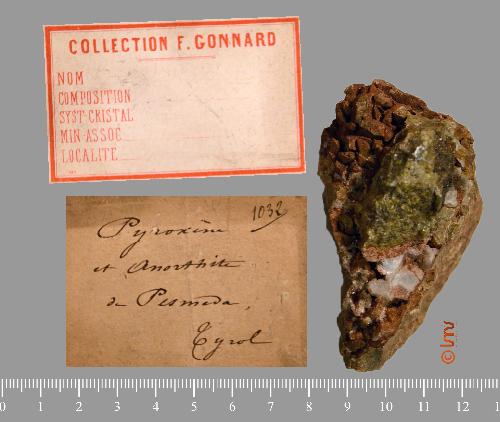 COLLECTION F. GONNARD
NOM
COMPOSITION
SYST. CRISTAL
MIN. ASSOC
LOCALITE
1032
Pyroxène
et Anorthite
de Pesmeda,
Tyrol
0 1 2 3 4 5 6 7 8 9 10 11 12